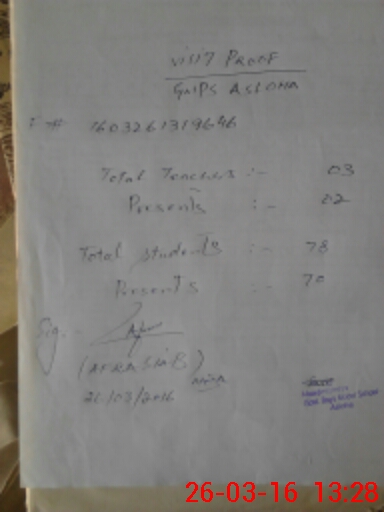 VISIT PROOF
GMPS ASLOHA
T # 1603261319646
Total Teachers :- 03
Presents :- 02
Total students :- 78
Presents :- 70
Sig.
(AFRASIAB)
26/03/2016
26-03-16 13:28